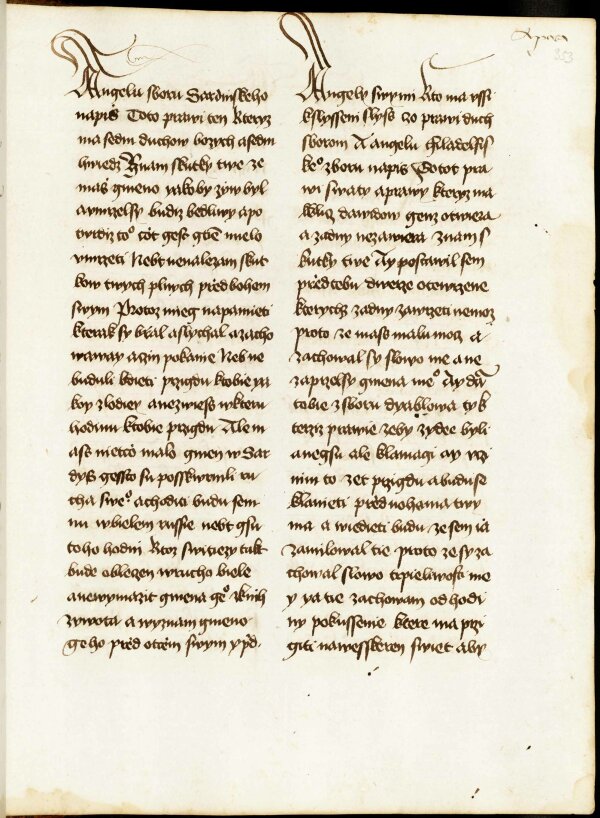 Apoca
353
Angelu sboru Sardinskeho
napiš Toto prawi ten kteryz
ma sedm duchow bozych a sedm
hwiezd Znam skutky twe ze
maš gmeno yakoby zyw byl
a vmrzelsy budiz bedliwy a po
twrdiz toº což gest gtie mielo
vmrzeti Nebt nenalezam skut
kow twych plnych před bohem
swym Protoz mieg na pamieti
kterak sy bral a slychal a zacho
waway a czin pokanie Neb ne
buduli bdieti przigdu k tobie ya
koy zlodiey a nezwiess w kteru
hodinu k tobie przigdu Ale m
ass nietčo malo gmen w Sar
dyš gessto su posskwrnili ru
cha sweº a choditi budu sem
nu w bielem russie nebt gsu
toho hodni Ktoz switiezy takt
bude oblezen w rucho biele
a newymazit gmena geº z knih
zywota a wyznam gmeno
geho před otcem swym y přd
Angely swymi Kto ma vssi
k slyssem slyš co prawi duch
sborom A angelu filadelfs
keº zboru napis Totot pra
wi swaty a prawy kteryz ma
kliuc dawidow genz otwiera
a zadny nezawiera znam s
kutky twe Ay postawil sem
před tebu dwerze otewrzene
kterychz zadny zawrzeti nemoz
proto ze mass malu moc a
zachowal sy slowo me a ne
zaprzelsy gmena meº Ay dā
tobie z sboru dyablowa tyk
terziz prawie zeby zydee byli
a negsu ale klamagi ay vcz
nim to zet przigdu a budu se
klanieti před nohama twy
ma a wiedieti budu ze sem ia
zamilowal tie proto ze sy za
chowal slowo trpieliwosti me
y ya tie zachowam od hodi
ny pokussenie ktere ma przi
giti na wesskeren swiet aby